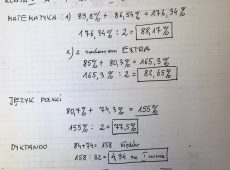 MATEMATYKA: 1) 89,8% + 86,54% = 176,34%
176,34% : 2 = 88,17%
2) z zadaniem EXTRA
85% + 80,3% = 165,3%
165,3% : 2 = 82,65%
JĘZYK POLSKI
80,7% + 74,3% = 155%
155% : 2 = 77,5%
DYKTANDO 84+74 = 158 błędów
158 : 32 = 4,94 na 1 ucznia